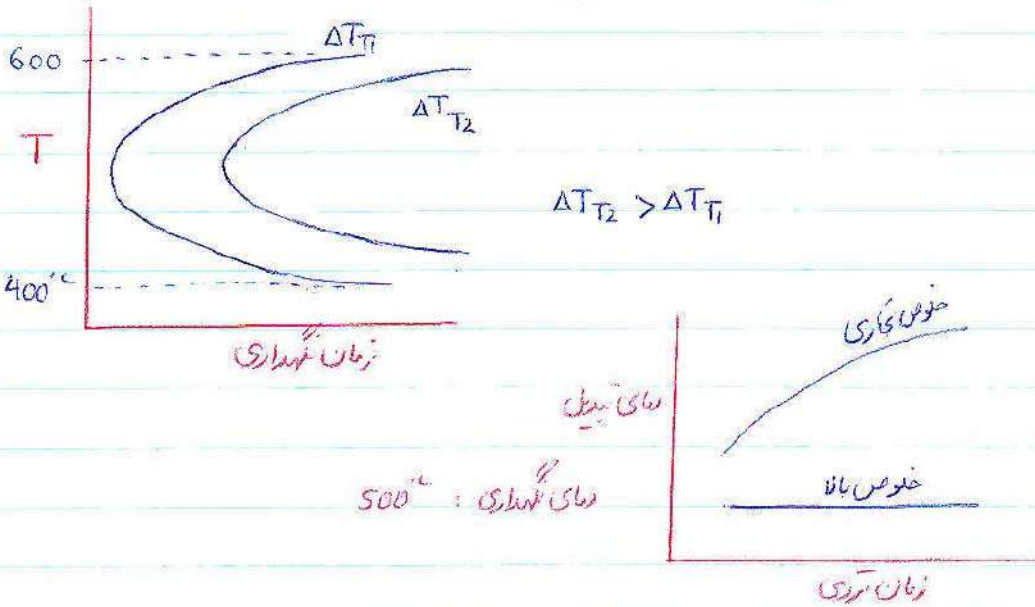 ΔT_T1
600
ΔT_T2
T
ΔT_T2 > ΔT_T1
400°C
زمان نگهداری
خلوص تجاری
دمای تبدیل
خلوص بالا
دمای نگهداری : 500°C
زمان تردی